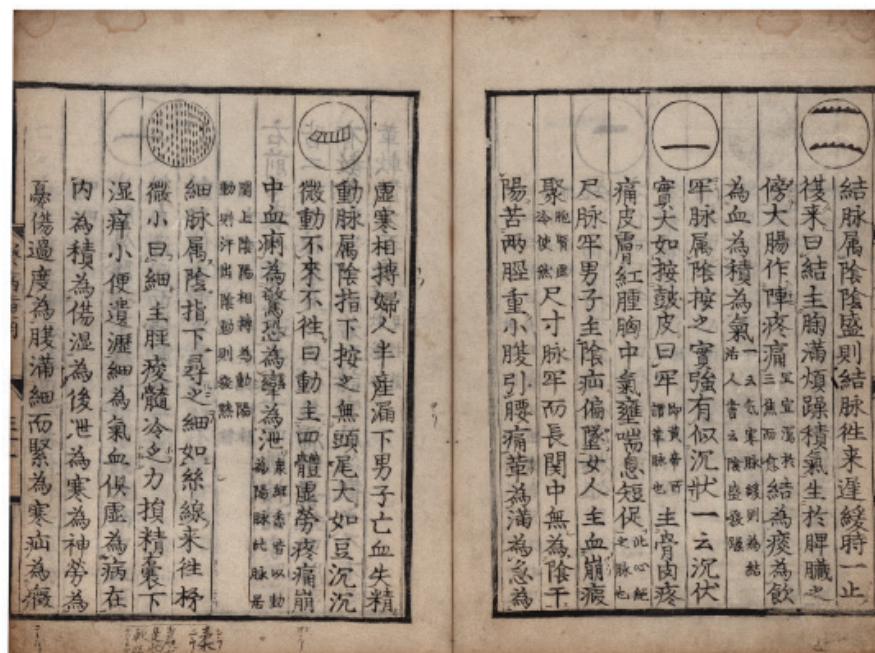 結脉属陰陰盛則結脉徃来遲緩時一止
復来曰結主胸滿煩躁積氣生於脾臟之
傍大腸作陣疼痛宜宣瀉於三焦而愈結為痰為飲
為血為積為氣一云氣寒脉緩則為結活人書云陰盛發躁
牢脉属陰按之實強有似沉狀一云沉伏
實大如按皷皮曰牢即黄帝所謂革脉也主骨肉疼
痛皮膚紅腫胸中氣壅喘息短促此心絶之脉也
尺脉牢男子主陰疝偏墜女人主血崩瘕
聚胞腎虛冷使然尺寸脉牢而長関中無為陰干
陽苦兩脛重小腹引腰痛革為滿為急為
虛寒相搏婦人半産漏下男子亡血失精
動脉属陰指下按之無頭尾大如豆沉沉
微動不來不徃曰動主四體虛勞疼痛崩
中血痢為驚恐為攣為泄者以動為陽脉此脉居
関上陰陽相搏為動陽動則汗出陰動則發熱
細脉属陰指下尋之細如絲線来徃極
微小曰細主脛痠髓冷乏力損精囊下
湿痒小便遺瀝細為氣血俱虛為病在
内為積為傷湿為後泄為寒為神勞為
憂傷過度為腹滿細而緊為寒疝為癥